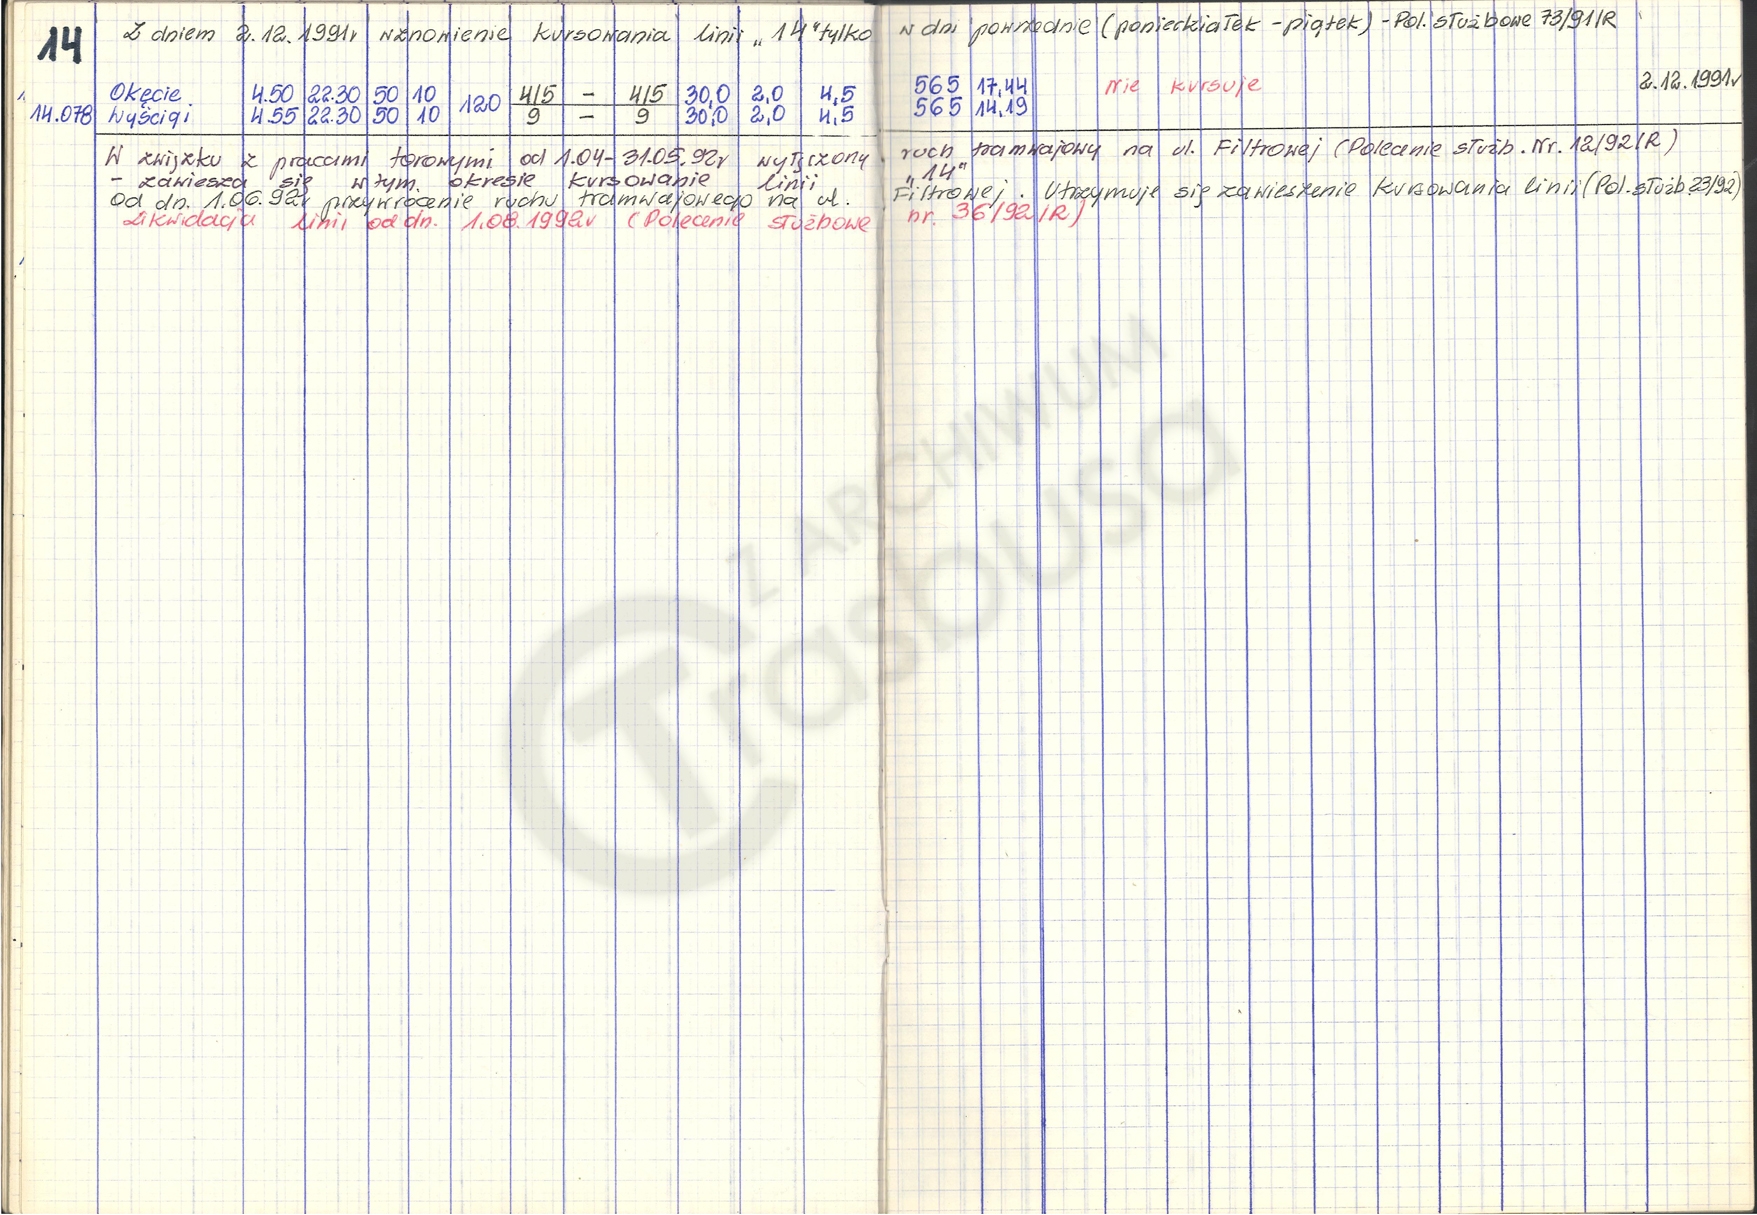 14 Z dniem 2.12.1991r wznowienie kursowania linii „14" tylko w dni powszednie (poniedziałek - piątek) - Pol. służbowe 73/91/R
Okęcie 4.50 22.30 50 10 120 4/5 - 4/5 30,0 2,0 4,5 565 17,44 Nie kursuje 2.12.1991r
14.078 Wyścigi 4.55 22.30 50 10 9 - 9 30,0 2,0 4,5 565 14,19
W związku z pracami torowymi od 1.04 - 31.05.92r wyłączony ruch tramwajowy na ul. Filtrowej (Polecenie służb. Nr. 12/92/R)
- zawiesza się w tym okresie kursowanie linii „14"
Od dn. 1.06.92r przywrócenie ruchu tramwajowego na ul. Filtrowej. Utrzymuje się zawieszenie kursowania linii (Pol. służb 23/92)
Likwidacja linii od dn. 1.08.1992r (Polecenie służbowe nr. 36/92/R)
Z ARCHIWUM
Trasbusa